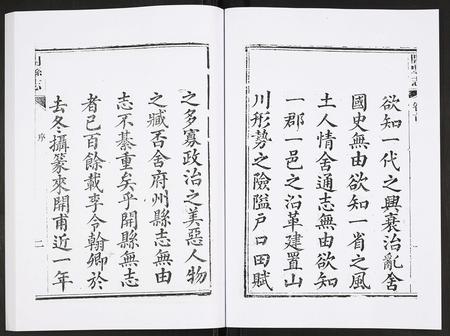 欲知一代之興衰治亂舍
國史無由欲知一省之風
土人情舍通志無由欲知
一郡一邑之沿革建置山
川形勢之險隘戶口田賦
之多寡政治之美惡人物
之臧否舍府州縣志無由
志不綦重矣乎開縣無志
者已百餘載李令翰卿於
去冬攝篆來開甫近一年
序
二